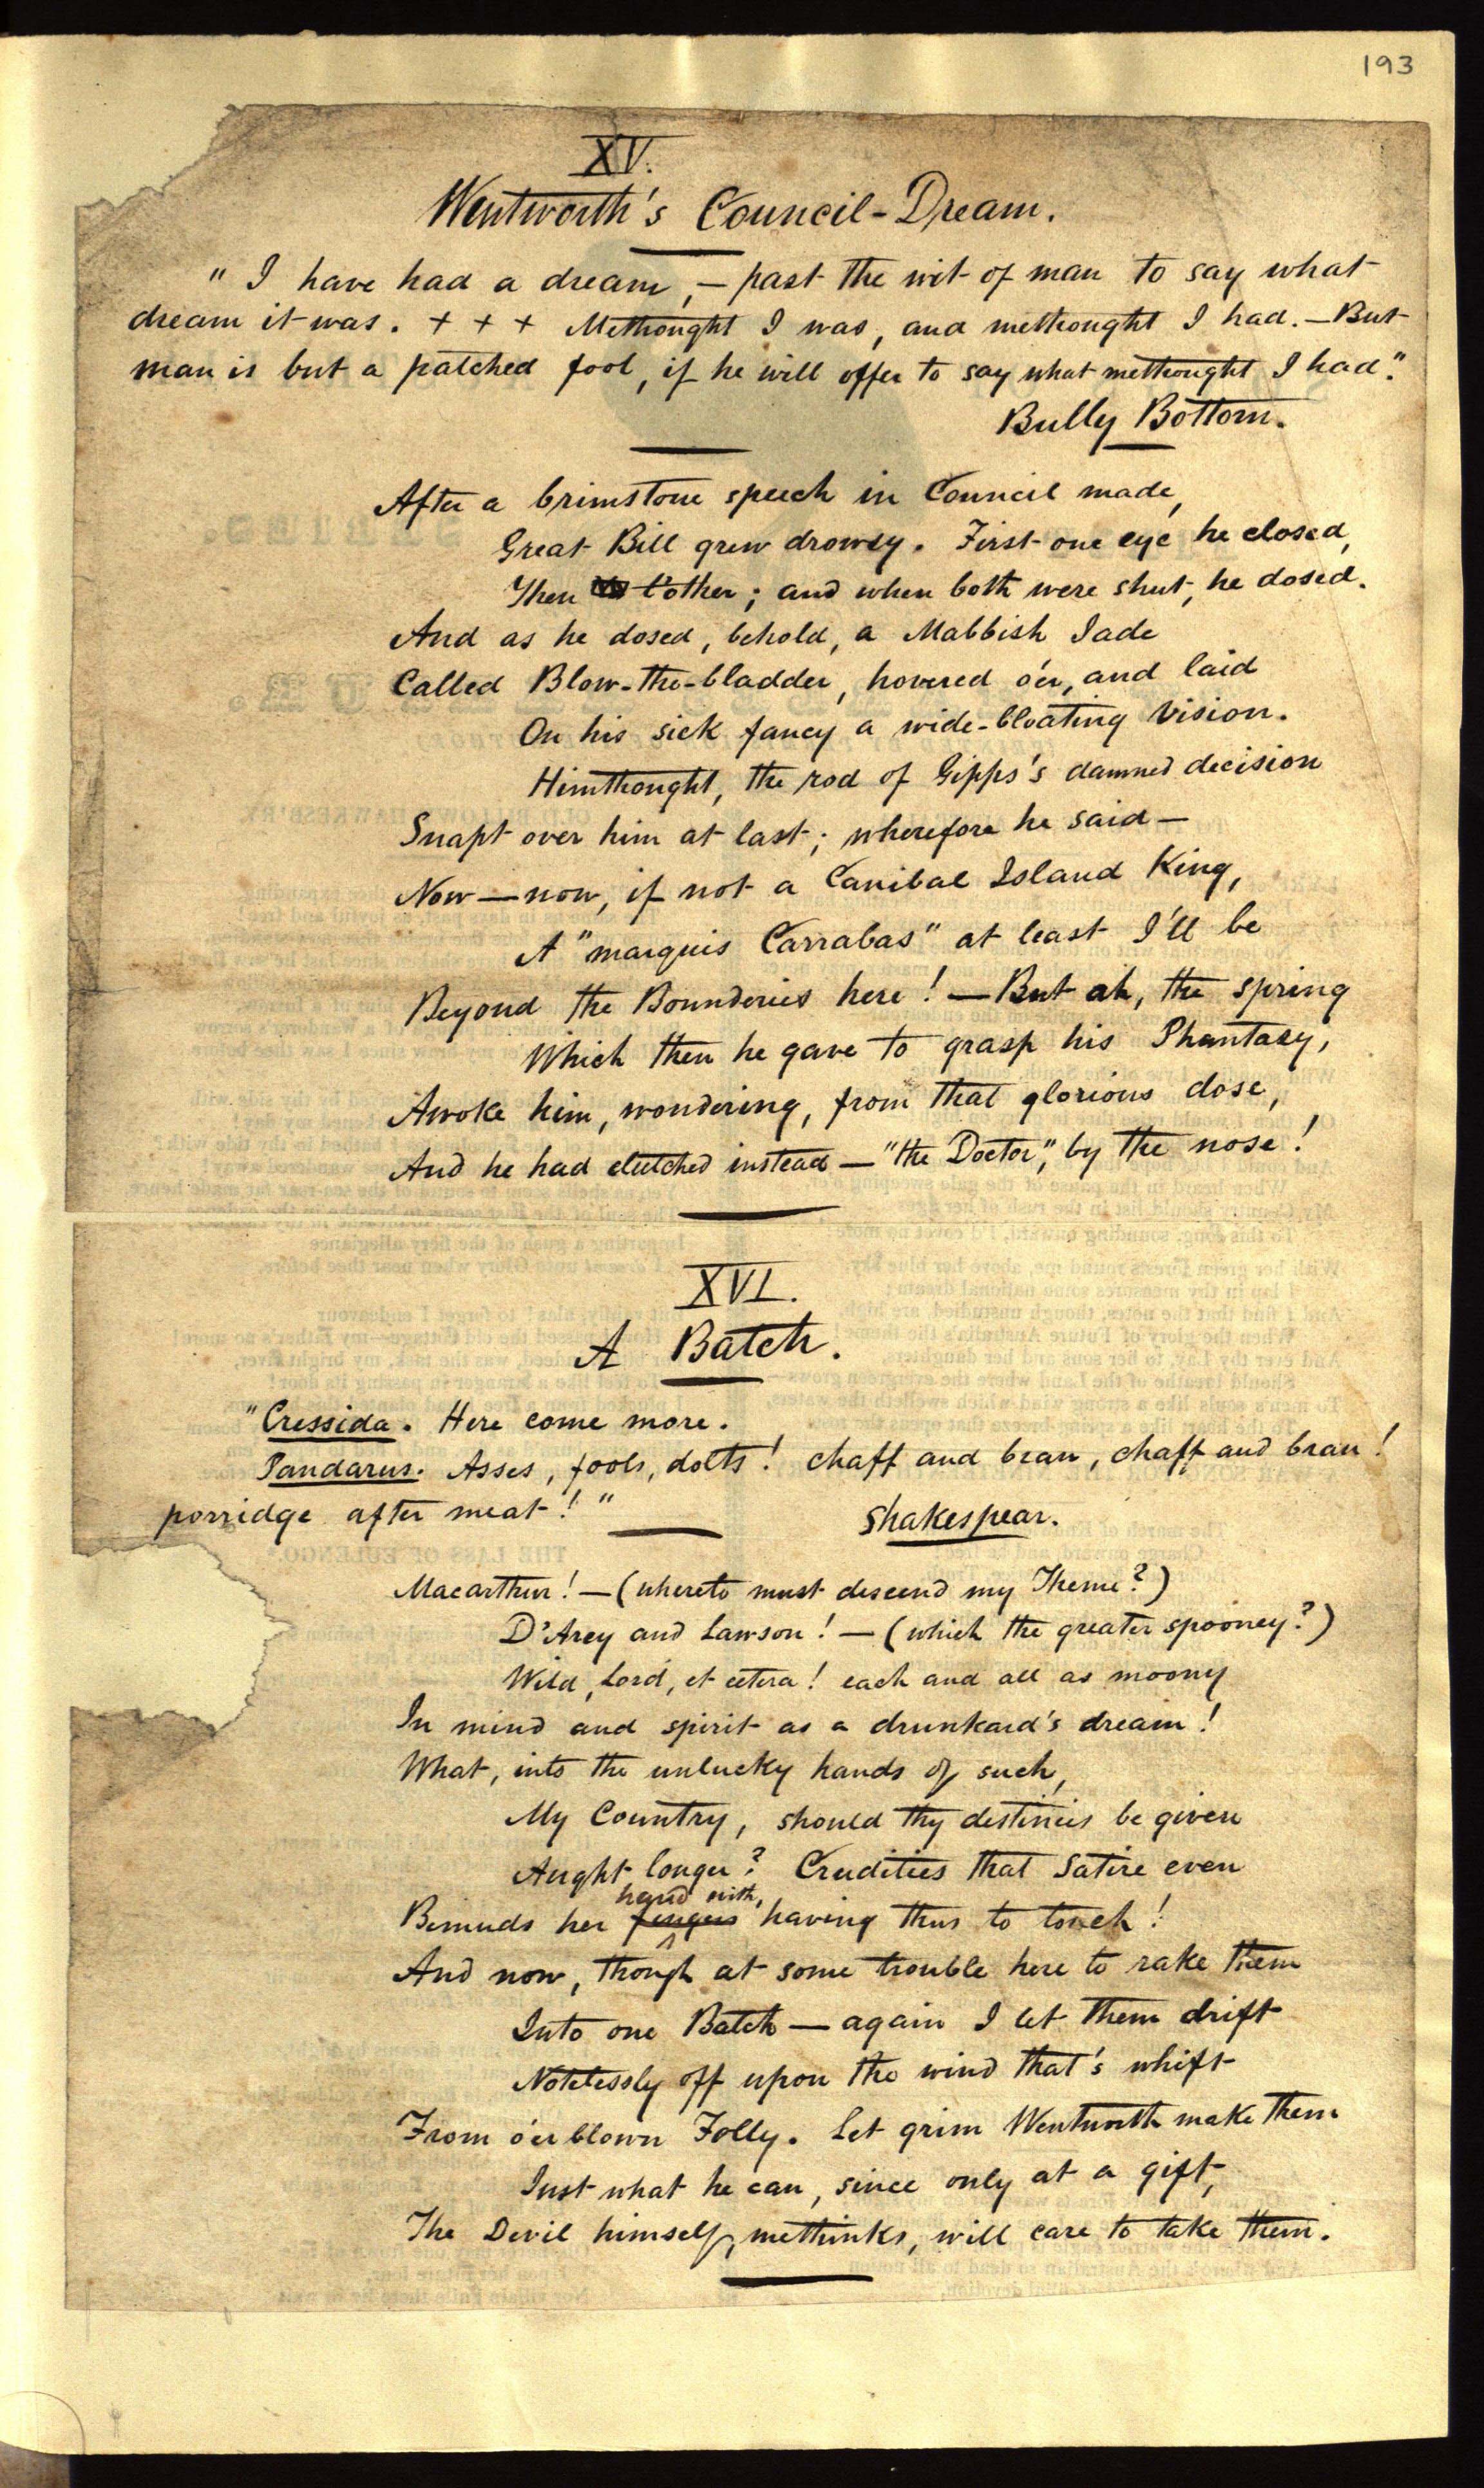 193
XV.
Wentworth's Council-Dream.
"I have had a dream,— past the wit of man to say what
dream it was. + + + Methought I was, and methought I had.—But
man is but a patched fool, if he will offer to say what methought I had."
Bully Bottom.
After a brimstone speech in Council made,
Great Bill grew drowsy. First one eye he closed,
Then t'other; and when both were shut, he dosed.
And as he dosed, behold, a Mabbish Jade
Called Blow-the-bladder, hovered o'er, and laid
On his sick fancy a wide-bloating Vision.
Himthought, the rod of Gipps's damned decision
Snapt over him at last; wherefore he said—
Now—now, if not a Canibal Island King,
A "marquis Carrabas" at least I'll be
Beyond the Bounderies here!—But ah, the spring
Which then he gave to grasp his Phantasy,
Awoke him, wondering, from that glorious dose,
And he had clutched instead—"the Doctor", by the nose!
XVI.
A Batch.
"Cressida. Here come more.
Pandarus. Asses, fools, dolts! chaff and bran, chaff and bran!
porridge after meat!"
Shakespear.
Macarthur!—(whereto must descend my Theme?)
D'Arcy and Lawson!—(which the greater spooney?)
Wild, Lord, et cetera! each and all as moony
In mind and spirit as a drunkard's dream!
What, into the unlucky hands of such,
My Country, should thy destinies be given
Aught longer? Crudities that Satire even
hand with,
Bemuds her fingers having thus to touch!
And now, though at some trouble here to rake them
Into one Batch—again I let them drift
Notelessly off upon the wind that's whift
From o'erblown Folly. Let grim Wentworth make them
Just what he can, since only at a gift,
The Devil himself, methinks, will care to take them.